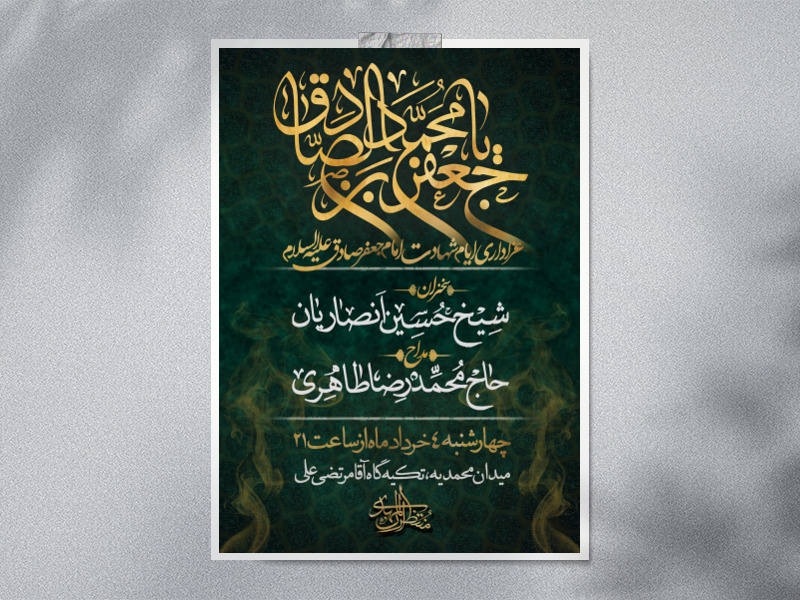 یا جعفر بن محمد الصادق
عزاداری ایام شهادت امام جعفر صادق علیه السلام
سخنران
شیخ حسین انصاریان
مداح
حاج محمدرضا طاهری
چهارشنبه ۴ خرداد ماه از ساعت ۲۱
میدان محمدیه، تکیه گاه آقا مرتضی علی
منتظران المهدی